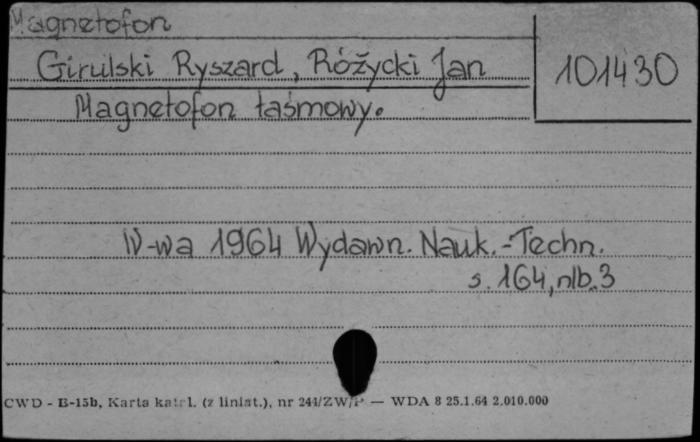 Magnetofon
Girulski Ryszard, Różycki Jan
101430
Magnetofon taśmowy.
W-wa 1964 Wydawn. Nauk.-Techn.
s. 164, nlb. 3
CWD - B-15b, Karta katal. (z liniat.), nr 244/ZW/P — WDA 8 25.1.64 2.010.000